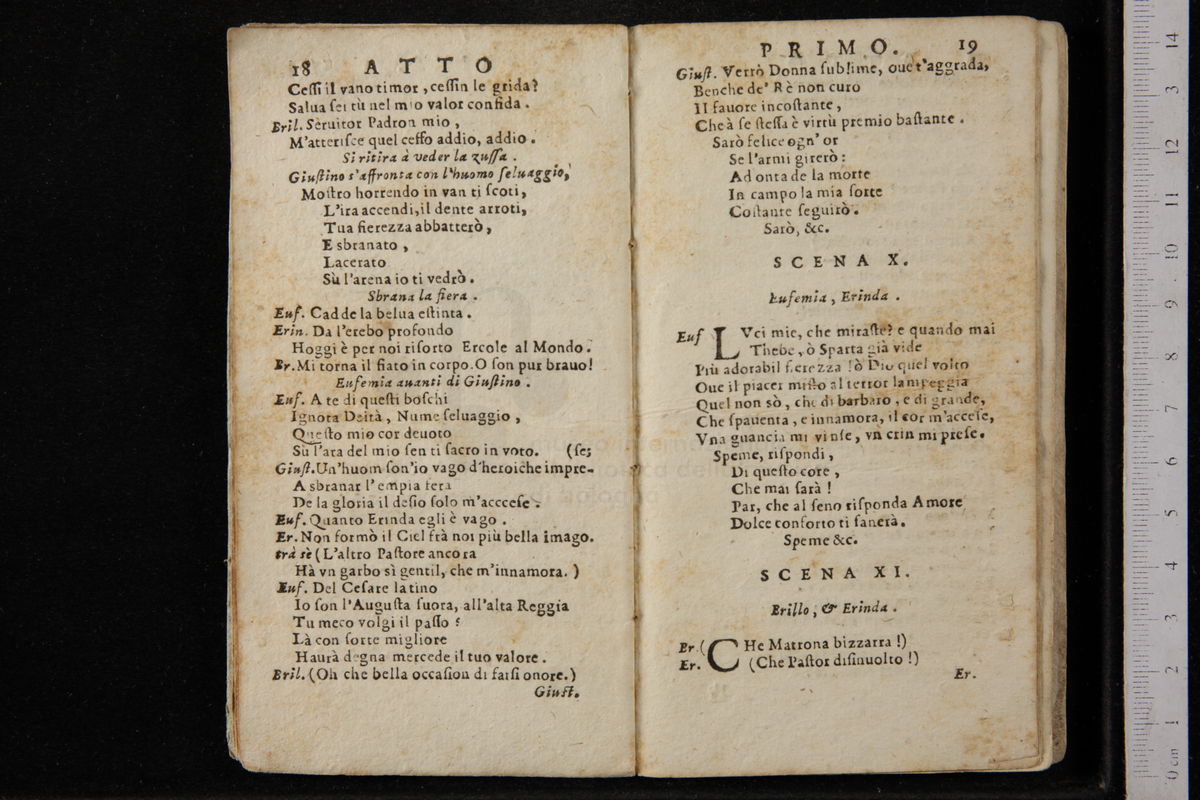 18 ATTO
Cessi il vano timor, cessin le grida?
Salua sei tù nel mio valor confida.
Bril. Seruitor Padron mio,
M'atterisce quel ceffo addio, addio.
Si ritira à veder la zuffa.
Giustino s'affronta con l'huomo seluaggio,
Mostro horrendo in van ti scoti,
L'ira accendi, il dente arroti,
Tua fierezza abbatterò,
E sbranato,
Lacerato
Sù l'arena io ti vedrò.
Sbrana la fiera.
Euf. Cadde la belua estinta.
Erin. Da l'erebo profondo
Hoggi è per noi risorto Ercole al Mondo.
Br. Mi torna il fiato in corpo. O son pur brauo!
Eufemia auanti di Giustino.
Euf. A te di questi boschi
Ignota Deità, Nume seluaggio,
Questo mio cor deuoto
Sù l'ara del mio sen ti sacro in voto. (se;
Giust. Un'huom son'io vago d'heroiche impre-
A sbranar l'empia fera
De la gloria il desio solo m'accese.
Euf. Quanto Erinda egli è vago.
Er. Non formò il Ciel frà noi più bella imago.
trà sè (L'altro Pastore ancora
Hà vn garbo sì gentil, che m'innamora.)
Euf. Del Cesare latino
Io son l'Augusta suora, all'alta Reggia
Tu meco volgi il passo:
Là con sorte migliore
Haurà degna mercede il tuo valore.
Bril. (Oh che bella occasion di farsi onore.)
Giust.
PRIMO. 19
Giust. Verrò Donna sublime, oue t'aggrada,
Benche de' Rè non curo
Il fauore incostante,
Che à se stessa è virtù premio bastante.
Sarò felice ogn'or
Se l'armi girerò:
Ad onta de la morte
In campo la mia sorte
Costante seguirò.
Sarò, &c.
SCENA X.
Eufemia, Erinda.
Euf LVci mie, che miraste? e quando mai
Thebe, ò Sparta già vide
Più adorabil fierezza! ò Dio quel volto
Oue il piacer misto al terror lampeggia
Quel non sò, che di barbaro, e di grande,
Che spauenta, e innamora, il cor m'accese,
Vna guancia mi vinse, vn crin mi prese.
Speme, rispondi,
Di questo core,
Che mai sarà!
Par, che al seno risponda Amore
Dolce conforto ti sanerà.
Speme &c.
SCENA XI.
Brillo, & Erinda.
Br. (CHe Matrona bizzarra!)
Er. (Che Pastor disinuolto!)
Er.